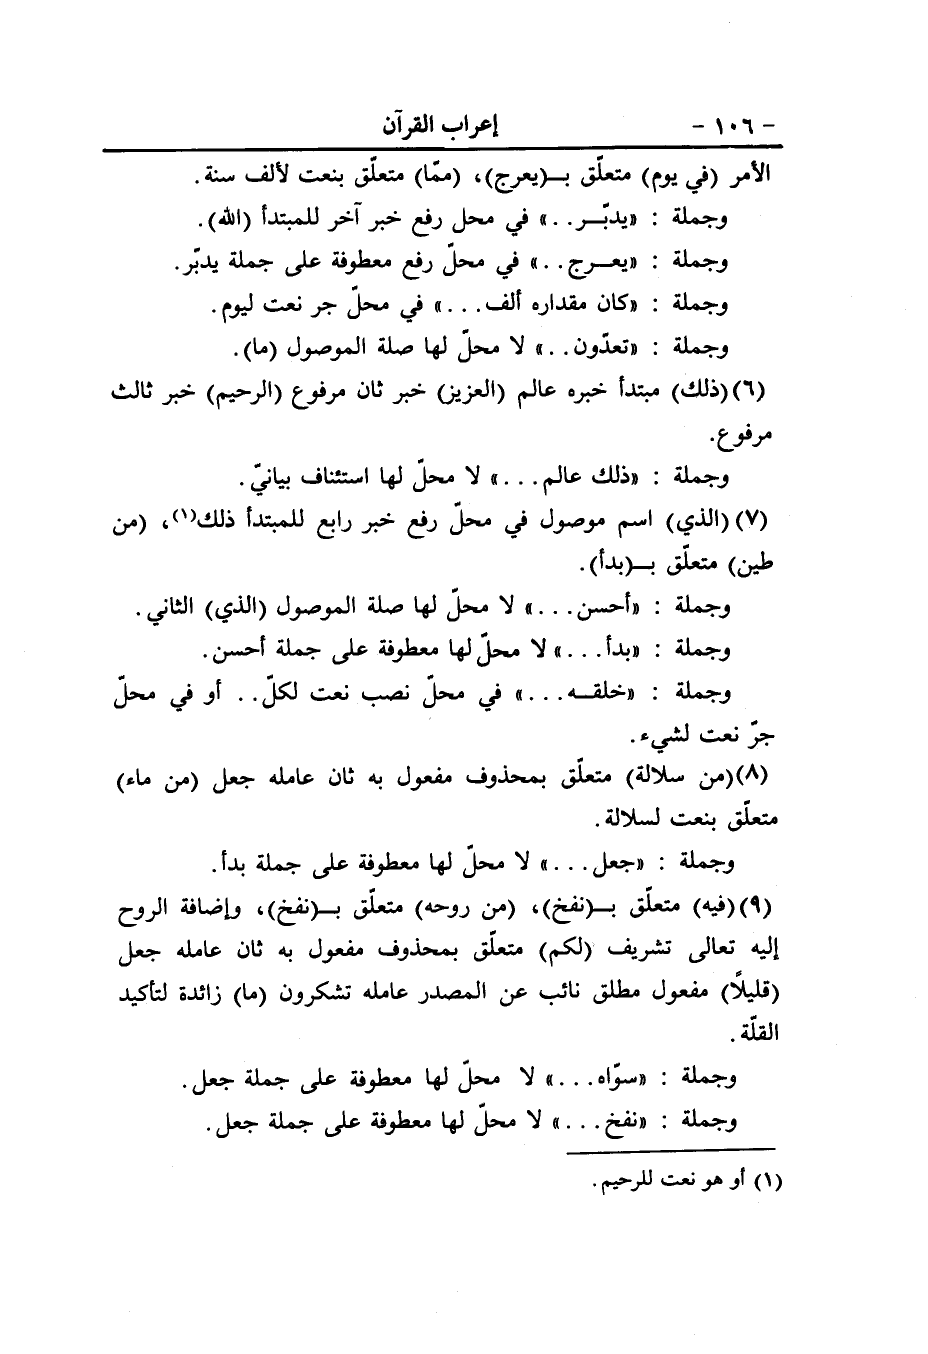 - ١٠٦ - إعراب القرآن
الأمر (في يوم) متعلّق بـ(يعرج)، (ممّا) متعلّق بنعت لألف سنة.
وجملة : «يدبّـر..» في محل رفع خبر آخر للمبتدأ (الله).
وجملة : «يعـرج..» في محلّ رفع معطوفة على جملة يدبّر.
وجملة : «كان مقداره ألف...» في محلّ جر نعت ليوم.
وجملة : «تعدّون..» لا محلّ لها صلة الموصول (ما).
(٦)(ذلك) مبتدأ خبره عالم (العزيز) خبر ثان مرفوع (الرحيم) خبر ثالث
مرفوع.
وجملة : «ذلك عالم...» لا محلّ لها استئناف بيانيّ.
(٧)(الذي) اسم موصول في محلّ رفع خبر رابع للمبتدأ ذلك(١)، (من
طين) متعلّق بـ(بدأ).
وجملة : «أحسن...» لا محلّ لها صلة الموصول (الذي) الثاني.
وجملة : «بدأ...» لا محلّ لها معطوفة على جملة أحسن.
وجملة : «خلقـه...» في محلّ نصب نعت لكلّ.. أو في محلّ
جرّ نعت لشيء.
(٨)(من سلالة) متعلّق بمحذوف مفعول به ثان عامله جعل (من ماء)
متعلّق بنعت لسلالة.
وجملة : «جعل...» لا محلّ لها معطوفة على جملة بدأ.
(٩)(فيه) متعلّق بـ(نفخ)، (من روحه) متعلّق بـ(نفخ)، وإضافة الروح
إليه تعالى تشريف (لكم) متعلّق بمحذوف مفعول به ثان عامله جعل
(قليلًا) مفعول مطلق نائب عن المصدر عامله تشكرون (ما) زائدة لتأكيد
القلّة.
وجملة : «سوّاه...» لا محلّ لها معطوفة على جملة جعل.
وجملة : «نفخ...» لا محلّ لها معطوفة على جملة جعل.
(١) أو هو نعت للرحيم.